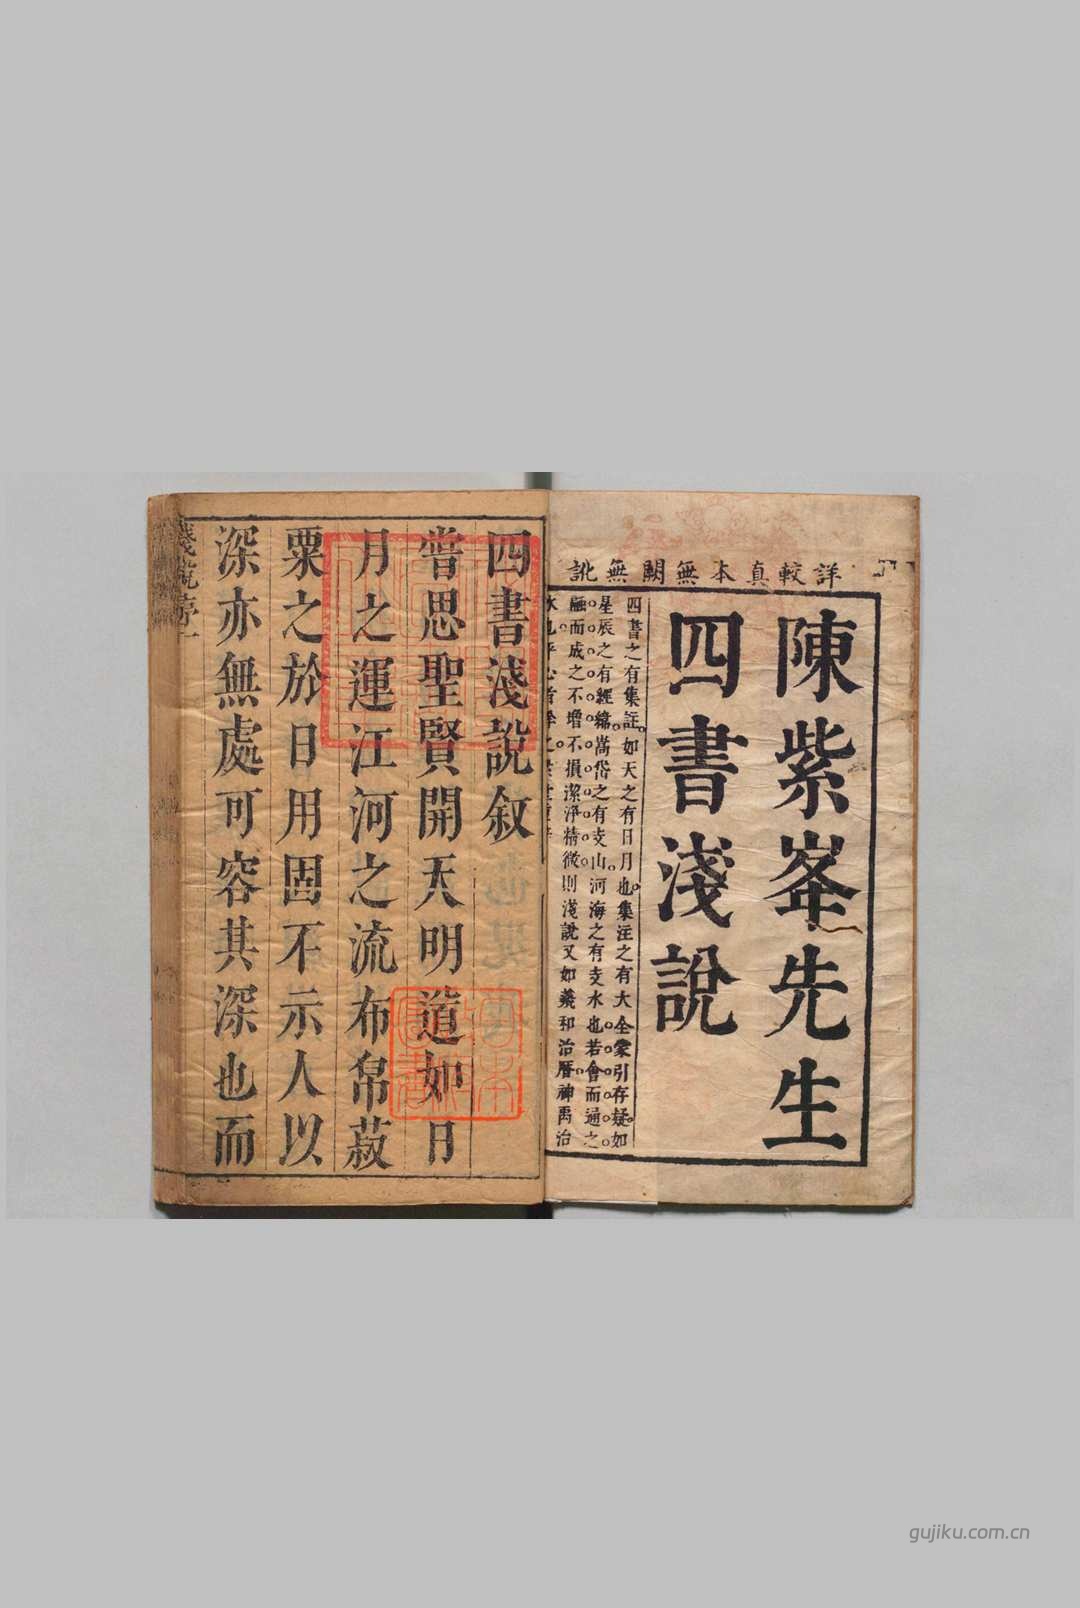 詳較真本無闕無訛
陳紫峯先生
四書淺說
四書之有集註如天之有日月也集注之有大全蒙引存疑如
星辰之有經緯嵩岱之有支山河海之有支水也若會而通之
融而成之不增不損潔淨精微則淺說又如羲和治曆神禹治
四書淺說敘
嘗思聖賢開天明道如日
月之運江河之流布帛菽
粟之於日用固不示人以
深亦無處可容其深也而
淺說序一
gujiku.com.cn